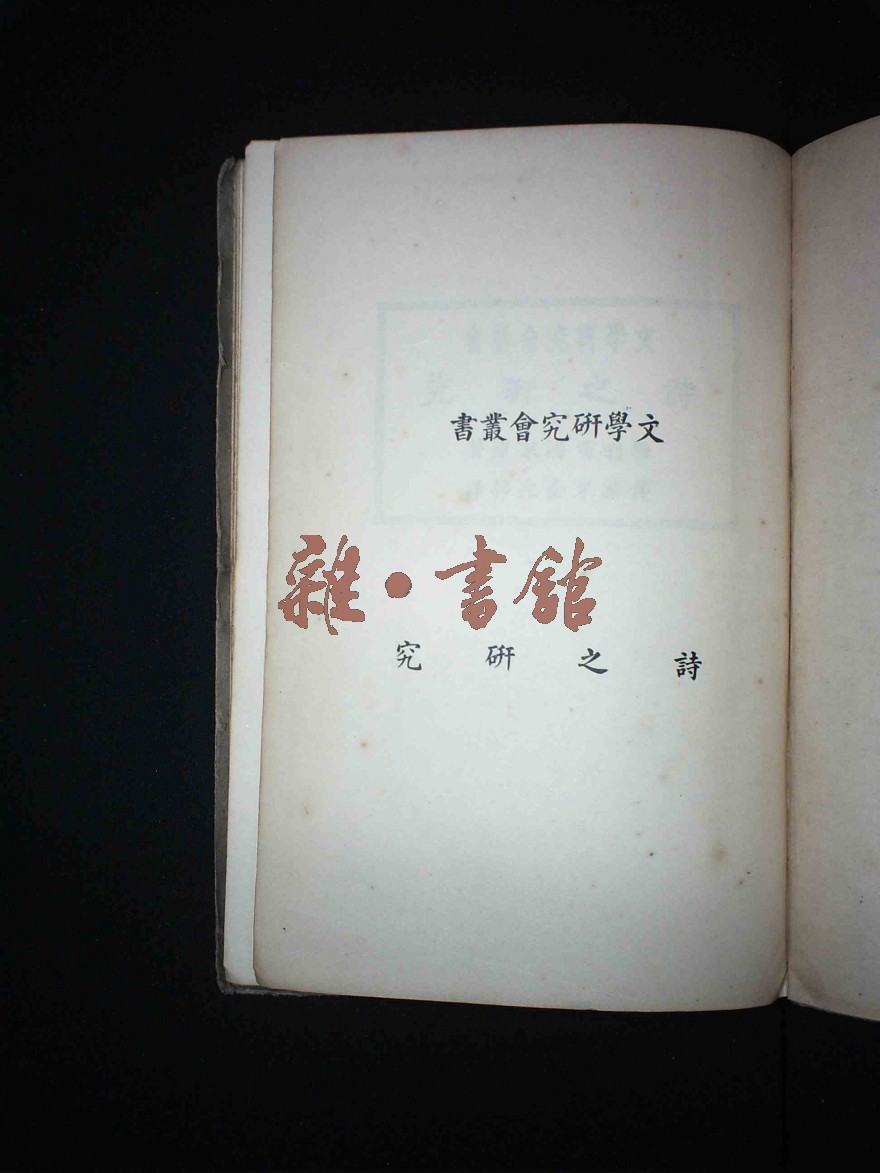 文學研究會叢書
雜·書館
詩之研究